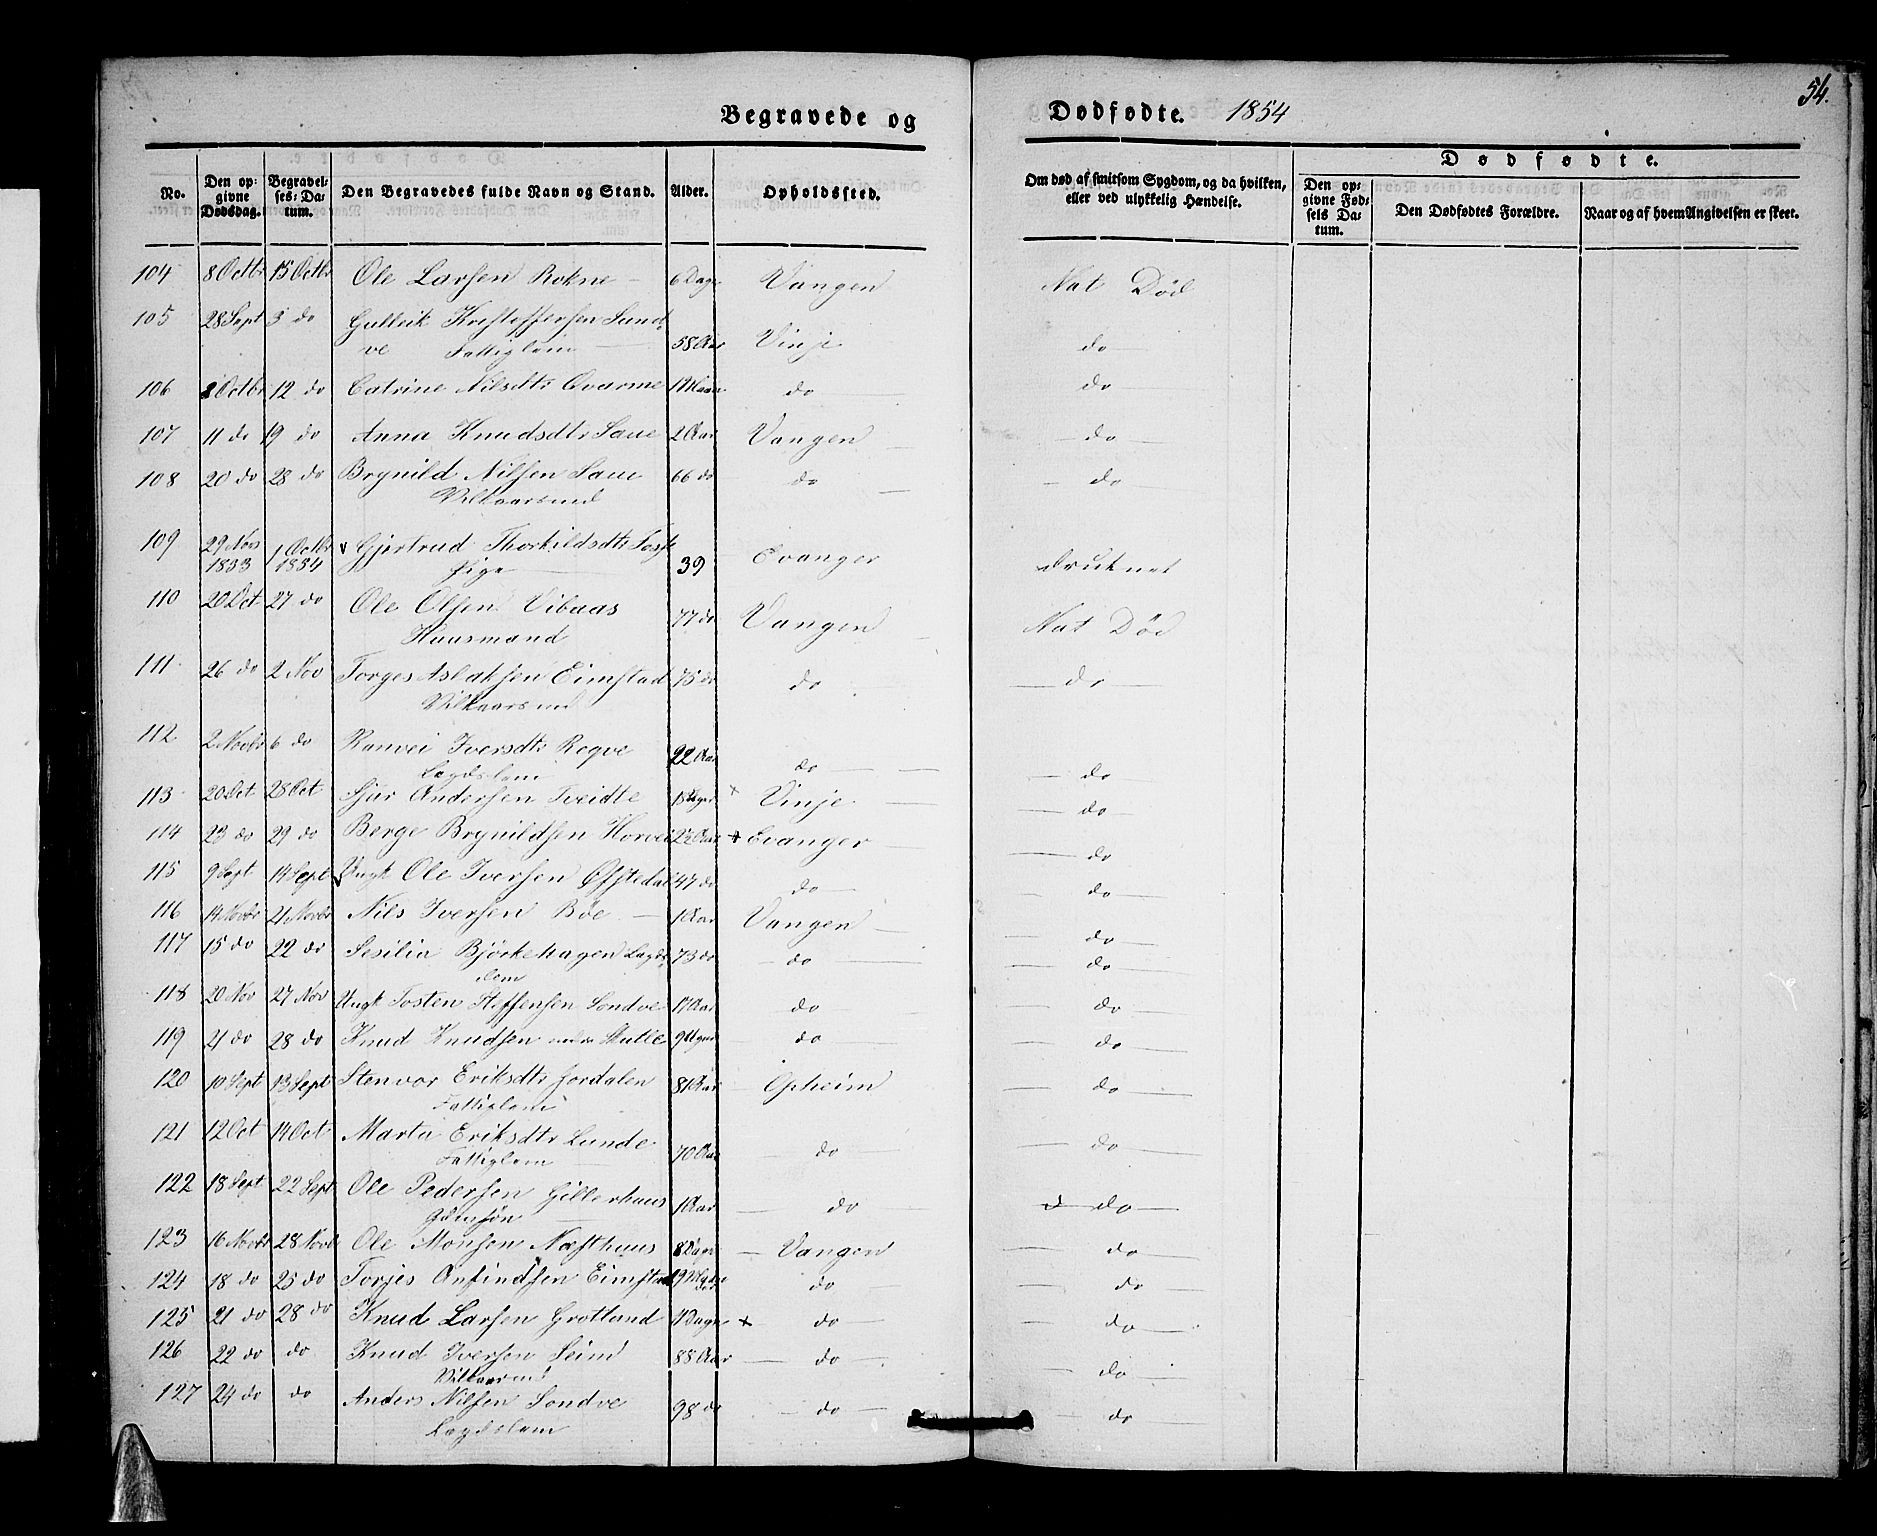 54.
Begravede og Dødfødte. 1854
No.
Den opgivne Dødsdag.
Begravelses-Datum.
Den Begravedes fulde Navn og Stand.
Alder.
Opholdssted.
Om død af smitsom Sygdom, og da hvilken, eller ved ulykkelig Hændelse.
Dødfødte.
Den opgivne Fødsels Datum.
Den Dødfødtes Forældre.
Naar og af hvem Angivelsen er skeet.
104 8 Octbr 15 Octbr Ole Larsen Rokne 6 Dage Vangen Nat Død
105 28 Sept 3 do Gulleik Kristoffersen Sund
ve Fattiglem 58 Aar Vinje do
106 8 Octbr 12 do Catrine Nilsdtr Qvarme do do
107 11 do 19 do Anna Knudsdtr Saue 2 Aar Vangen do
108 20 do 28 do Brynild Nilsen Saue 66 do do do
Vilkaarsmd
109 29 Nov 1853 1 Octbr 1854 Gjertrud Thorkildsdtr
Pige 39 Evanger druknet
110 20 Oct 27 do Ole Olsen Vibaas
Huusmand 77 do Vangen Nat Død
111 26 do 2 Nov Torges Aslaksen Eimstad 75 do do do
Vilkaarsmd
112 2 Novbr 6 do Ranvei Iversdtr Rogve
Lægdslem 22 Aar do do
113 20 Oct 28 Oct Sjur Andersen Tveidte + Vinje do
114 23 do 29 do Berge Brynildsen Horvei Aar + Evanger do
115 9 Sept 14 Sept Ungk Ole Iversen Øfstedal 47 do do do
116 14 Novbr 21 Novbr Nils Iversen Bøe 1 Aar Vangen do
117 15 do 22 do Sesilia Bjørkehagen Lægds
lem 73 do do do
118 20 Nov 27 Nov Ungk Tosten Steffensen Sondve Aar do do
119 21 do 28 do Knud Knudsen do do
120 10 Sept 13 Sept Stenvor Eriksdtr Jordalen 81 Aar Opheim do
Fattiglem
121 12 Oct 14 Oct Marta Eriksdtr Lunde
Fattiglem 70 Aar do do
122 18 Sept 22 Sept Ole Pedersen Gillerhuus
1 Aar do do
123 16 Novbr 28 Novbr Ole Monsen Næsthuus 8 Dage Vangen do
124 18 do 25 do Torjes Anfindsen Eimstad do do
125 21 do 28 do Knud Larsen Grotland Dage + do do
126 22 do do Knud Iversen Seim 88 Aar do do
Vilkaarsmd
127 24 do do Anders Nilsen Sondve 98 do do do
Lægdslem